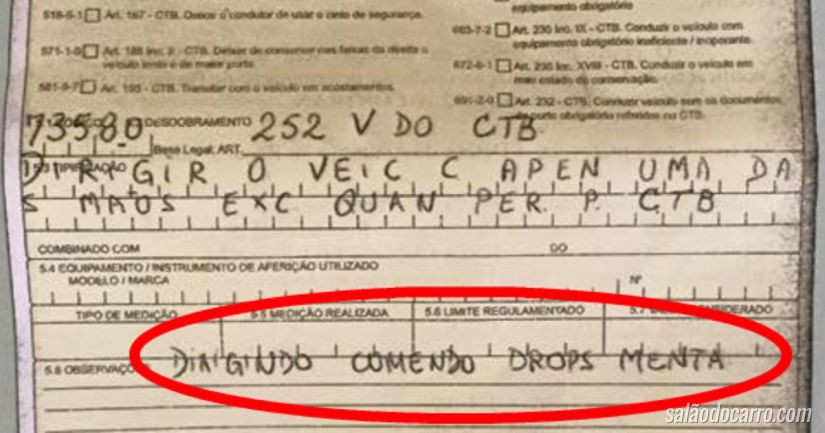 equipamento obrigatório
518-5-1 Art. 167 - CTB. Deixar o condutor de usar o cinto de segurança.
663-7-2 Art. 230 Inc. IX - CTB. Conduzir o veículo com
equipamento obrigatório ineficiente / inoperante.
571-1-0 Art. 185 Inc. II - CTB. Deixar de conservar nas faixas da direita o
veículo lento e de maior porte.
672-6-1 Art. 230 Inc. XVIII - CTB. Conduzir o veículo em
mau estado de conservação.
581-9-7 Art. 193 - CTB. Transitar com o veículo em acostamentos.
691-2-0 Art. 232 - CTB. Conduzir veículo sem os documentos
de porte obrigatório referidos no CTB.
73580 DESDOBRAMENTO 252 V DO CTB
Base Legal: ART.
DIRIGIR O VEIC C APEN UMA DA
S MAOS EXC QUAN PER. P. CTB
COMBINADO COM DO
5.4 EQUIPAMENTO / INSTRUMENTO DE AFERIÇÃO UTILIZADO
MODELO / MARCA Nº
TIPO DE MEDIÇÃO 5.5 MEDIÇÃO REALIZADA 5.6 LIMITE REGULAMENTADO 5.7 CONSIDERADO
5.8 OBSERVAÇÕ DIRIGINDO COMENDO DROPS MENTA
salãodocarro.com